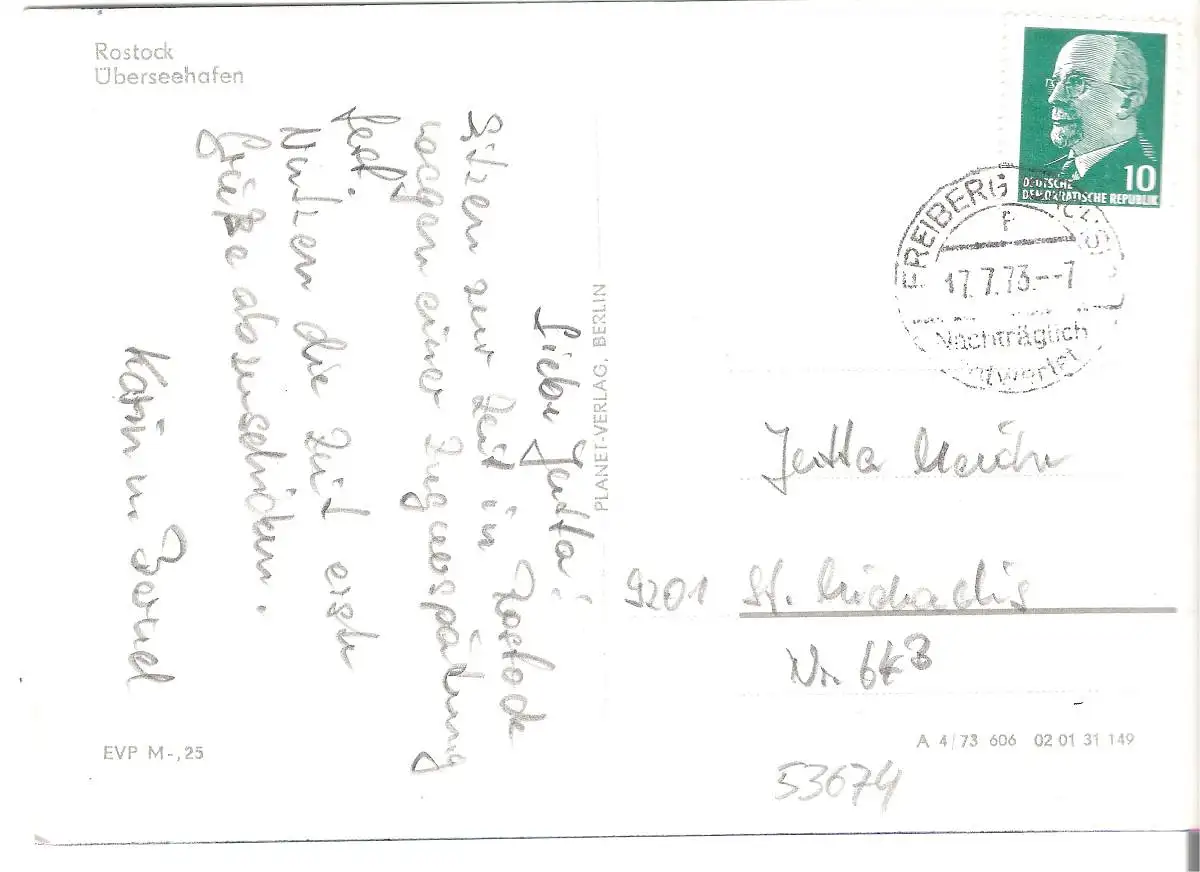 Rostock
Überseehafen
Liebe Jutta!
Sitzen zur Zeit in Rostock
wegen einer Zugverspätung
fest.
Nutzen die Zeit erst
Grüße abzuschicken.
Karin u. Bernd
EVP M-,25
PLANET-VERLAG, BERLIN
10
DEUTSCHE
DEMOKRATISCHE REPUBLIK
FREIBERG
17.7.73.--7
Nachträglich
entwertet
Jutta
9201 St. Michaelis
Nr. 64B
A 4/73 606 02 01 31 149
53674